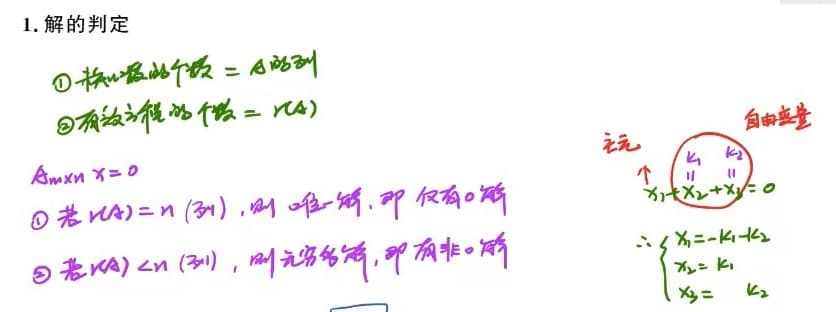 1. 解的判定
① 未知数的个数 = A的列
② 有效方程的个数 = r(A)
Am×n x = 0
① 若 r(A) = n (列), 则唯一解, 即仅有0解
② 若 r(A) < n (列), 则无穷多解, 即有非0解
主元
自由变量
↑
k₁ k₂
|| ||
x₁+x₂+x₃=0
∴ { x₁=-k₁-k₂
x₂= k₁
x₃= k₂